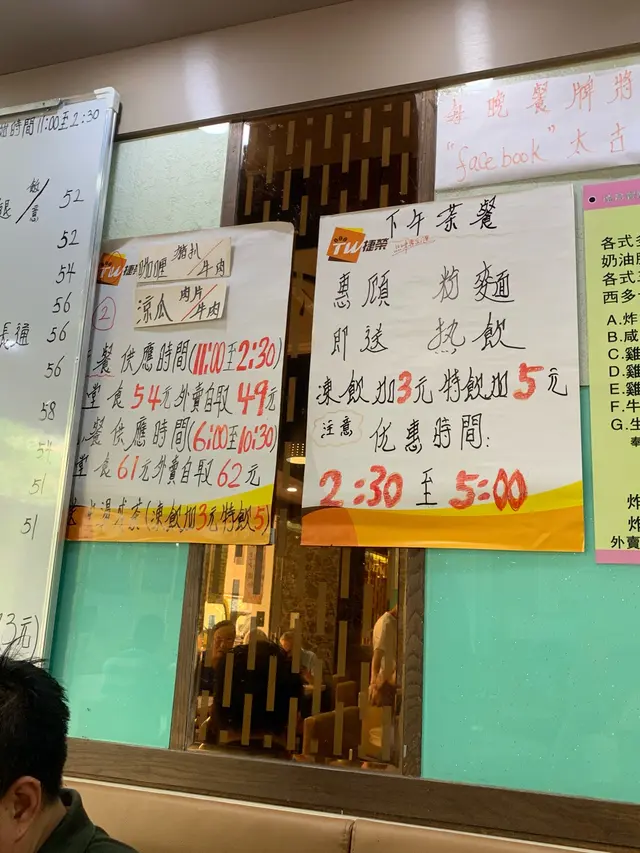 時間11:00至2:30
52
52
54
56
通 56
56
58
54
51
51
3元)
TW捷榮
咖喱 豬扒/牛肉
涼瓜 肉片/牛肉
②
餐供應時間(11:00至2:30)
堂食54元外賣自取49元
餐供應時間(6:00至10:30)
堂食61元外賣自取62元
(凍飲加3元特飲5)
下午茶餐
TW捷榮
惠顧 粉麵
即送 热飲
凍飲加3元特飲加5元
注意 优惠時間:
2:30至5:00
每晚餐牌將
"facebook"太古
各式
奶油
各式
西多
A.炸
B.咸
C.雞
D.雞
E.雞
F.牛
G.生
奉
炸
炸
外賣